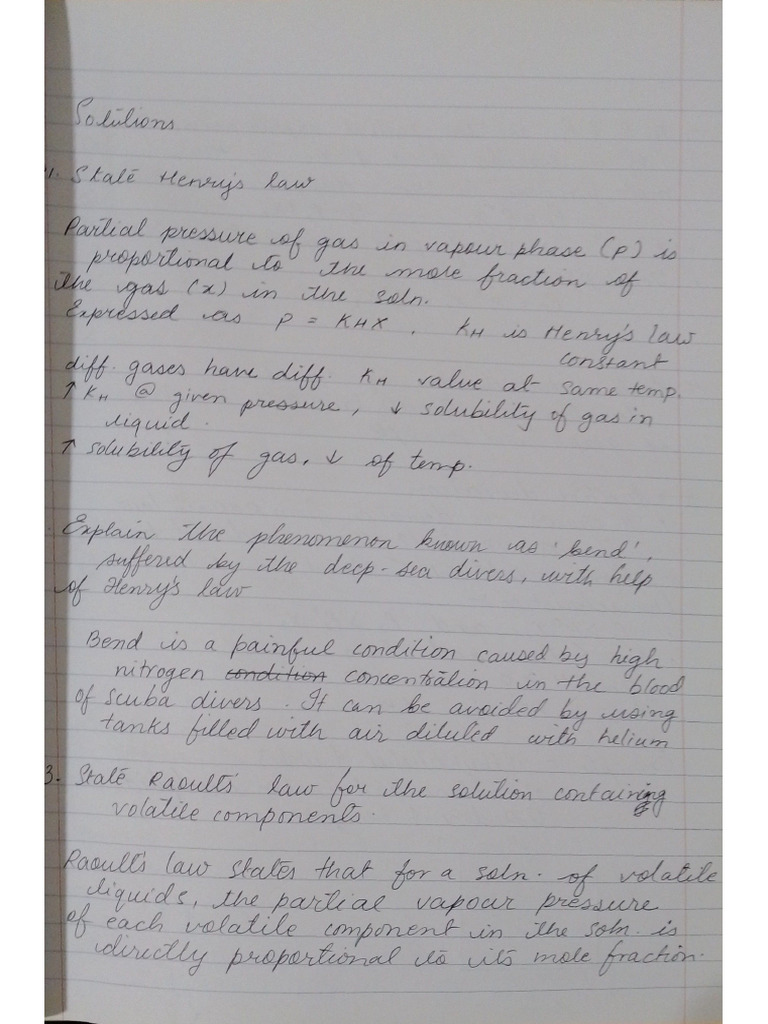 Solutions
1. State Henry's law
Partial pressure of gas in vapour phase (p) is
proportional to the mole fraction of
the gas (x) in the soln.
Expressed as p = KHX . KH is Henry's law
constant
diff. gases have diff. KH value at same temp.
↑ KH @ given pressure, ↓ solubility of gas in
liquid.
↑ solubility of gas, ↓ of temp.
Explain the phenomenon known as 'bend',
suffered by the deep-sea divers, with help
of Henry's law
Bend is a painful condition caused by high
nitrogen condition concentration in the blood
of scuba divers. It can be avoided by using
tanks filled with air diluled with helium
3. State Raoult's law for the solution containing
volatile components.
Raoult's law states that for a soln. of volatile
liquids, the partial vapour pressure
of each volatile component in the soln. is
directly proportional to its mole fraction.